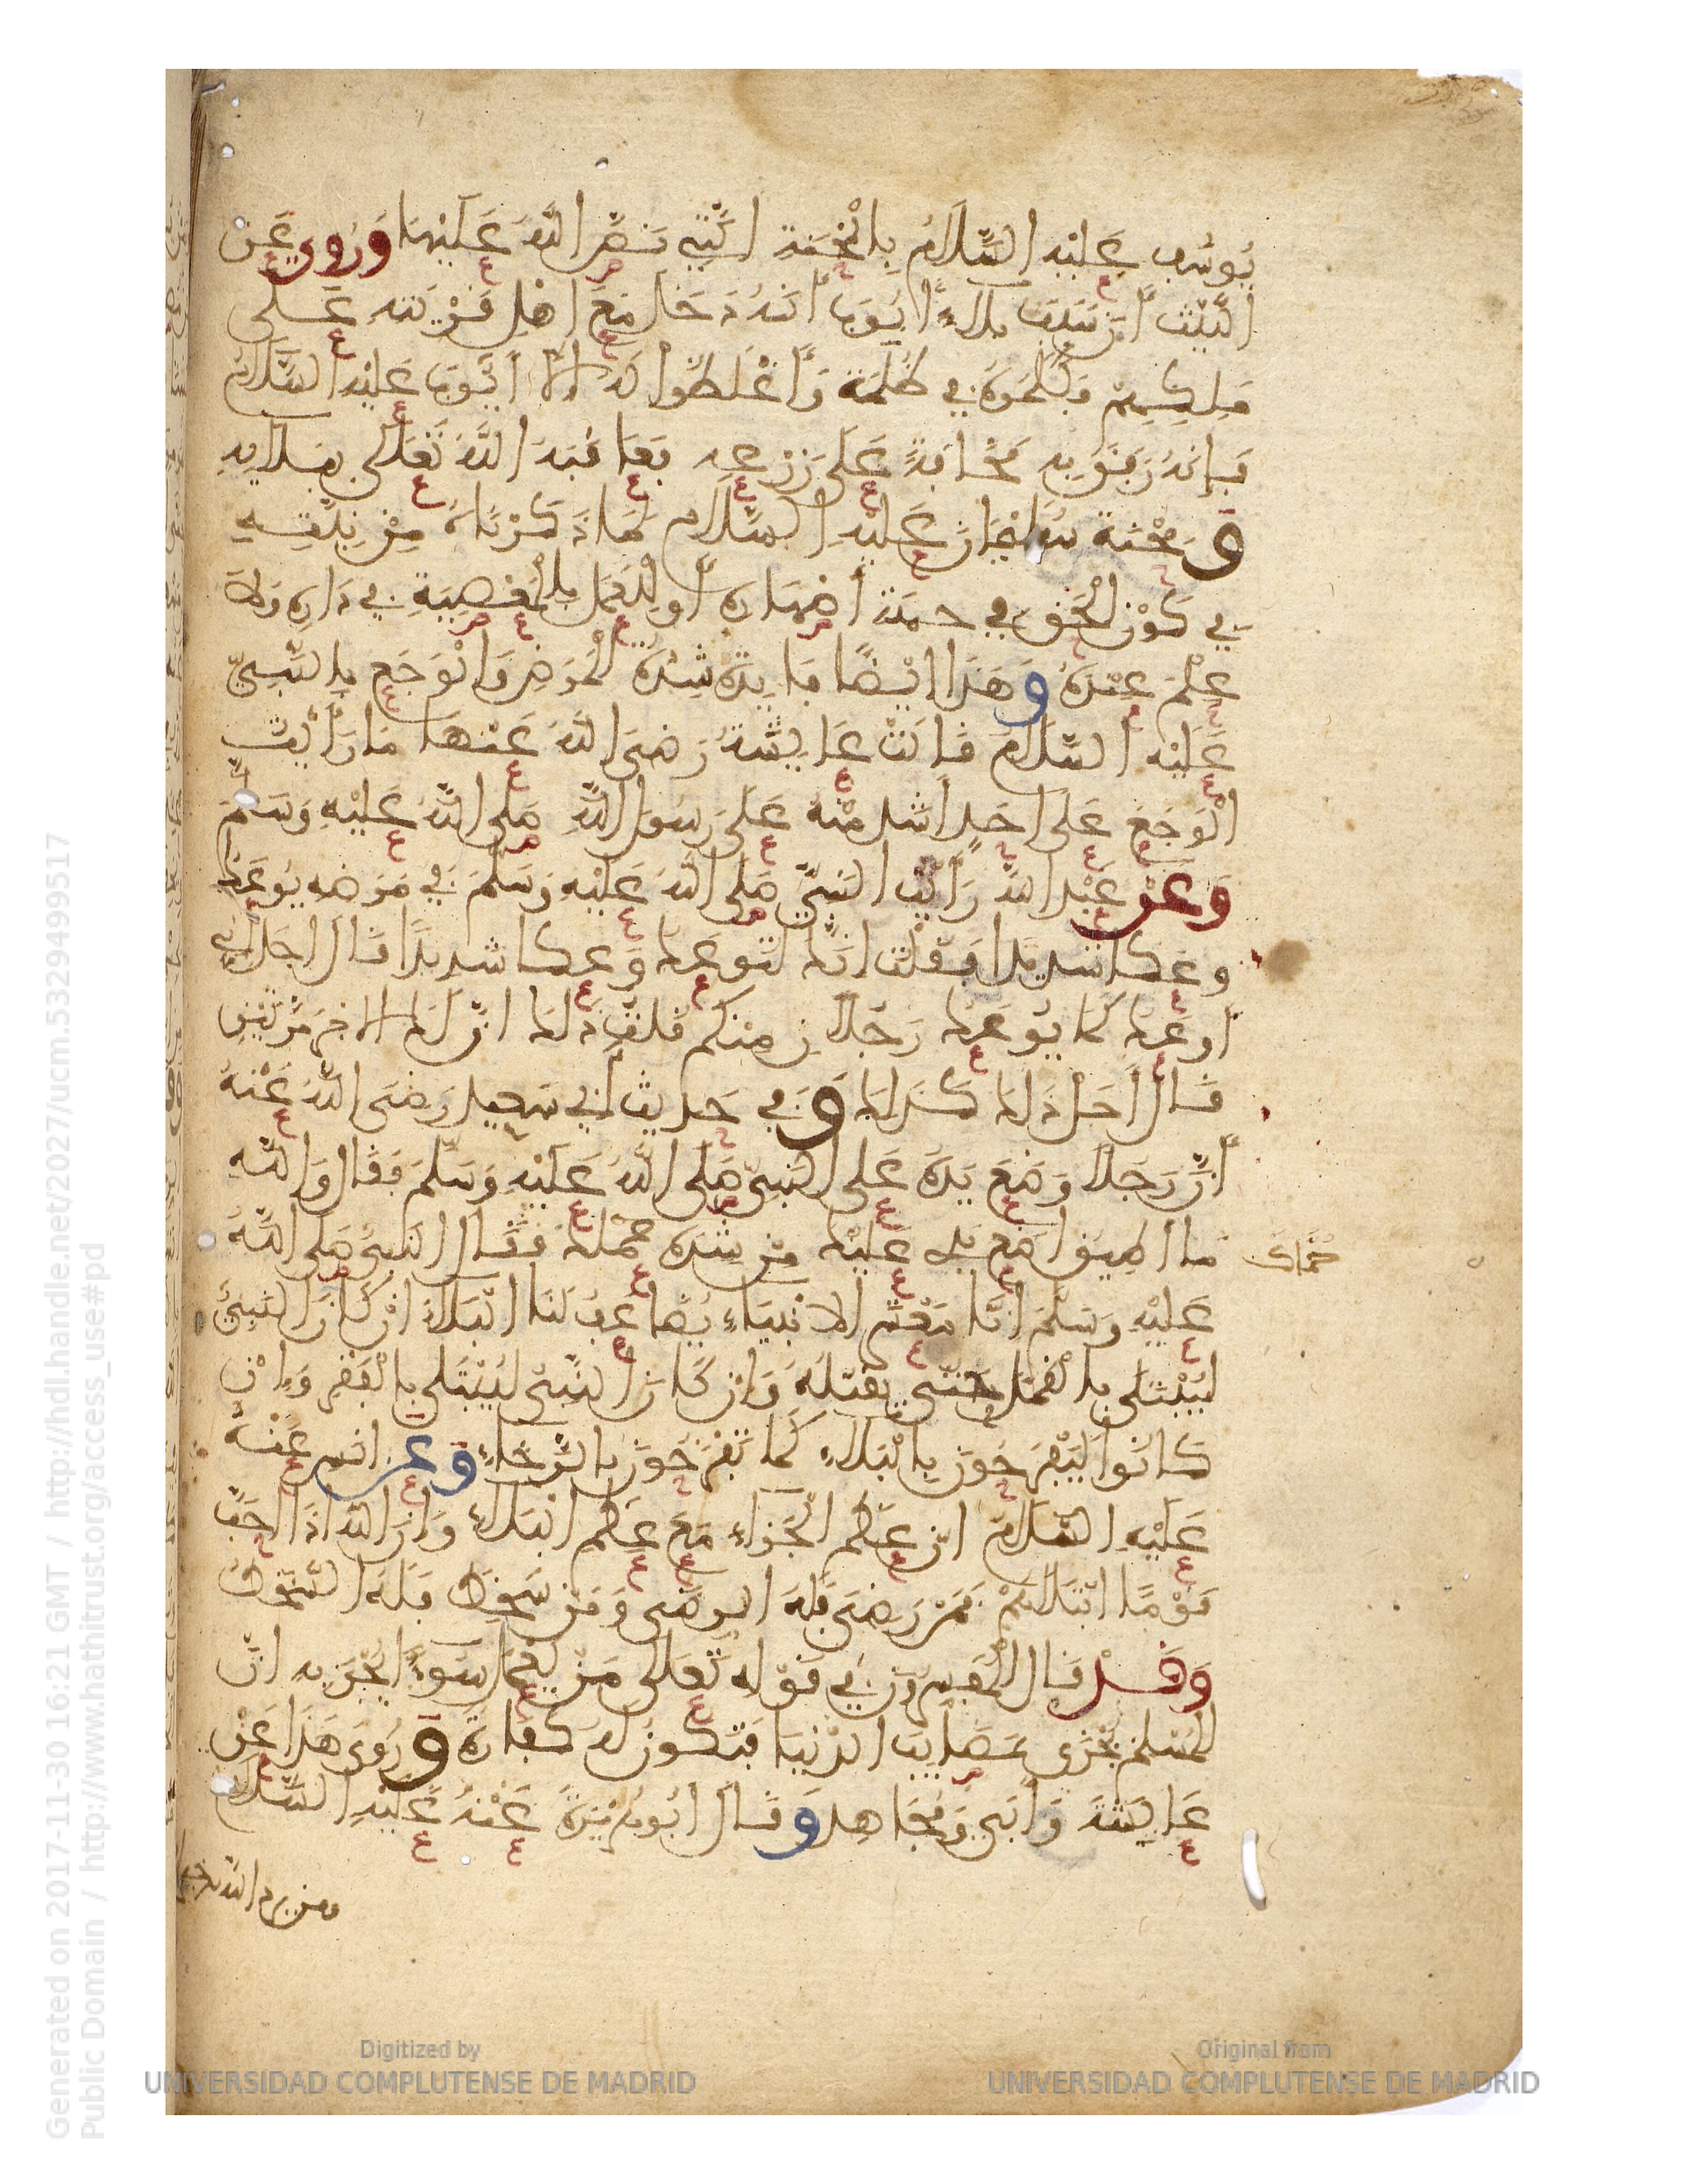 يوسف عليه السلام بالمحنة التي نصّ الله عليها وروي عن
الليث أن سبب بلاء أيوب أنه دخل مع اهل قريته على
ملكهم فكلموه في ظلمه وأغلظوا له إلا أيوب عليه السلام
فإنه رفق به مخافة على زرعه فعاقبه الله تعلى ببلائه
ومحنة سليمان عليه السلام لما ذكرناه من نيته
في كون الحق في جنبة أصهاره أو للعمل بالمعصية في داره ولا
علم عنده وهذا ايضا فايدة شدة المرض والوجع بالنبي
عليه السلام قالت عايشة رضي الله عنها ما رأيت
الوجع على احد اشد منه على رسول الله صلى الله عليه وسلم
وعن عبد الله رأيت النبي صلى الله عليه وسلم في مرضه يوعك
وعكا شديدا فقلت انك لتوعك وعكا شديدا قال اجل اني
أوعك كما يوعك رجلان منكم قلت ذلك ان لك الاجر مرتين
قال أجل ذلك كذلك وفي حديث أبي سعيد رضي الله عنه
أن رجلا وضع يده على النبي صلى الله عليه وسلم فقال والله
ما اطيق اضع يدي عليك من شدة حماك فقال النبي صلى الله
حماك
عليه وسلم انا معشر الانبياء يضاعف لنا البلاء ان كان النبي
ليبتلى بالقمل حتى يقتله وان كان النبي ليبتلى بالفقر وإن
كانوا ليفرحون بالبلاء كما تفرحون بالرخاء وعن انس عنه
عليه السلام ان عظم الجزاء مع عظم البلاء وان الله اذا احب
قوما ابتلاهم فمن رضي فله الرضى ومن سخط فله السخط
وقد قال المفسرون في قوله تعالى من يعمل سوءا يجز به ان
المسلم يجزى بمصايب الدنيا فتكون له كفارة وروي هذا عن
عايشة وأبي ومجاهد وقال ابو هريرة عنه عليه السلام
من يرد الله به خيرا
Generated on 2017-11-30 16:21 GMT / http://hdl.handle.net/2027/ucm.5329499517
Public Domain / http://www.hathitrust.org/access_use#pd
Digitized by
UNIVERSIDAD COMPLUTENSE DE MADRID
Original from
UNIVERSIDAD COMPLUTENSE DE MADRID